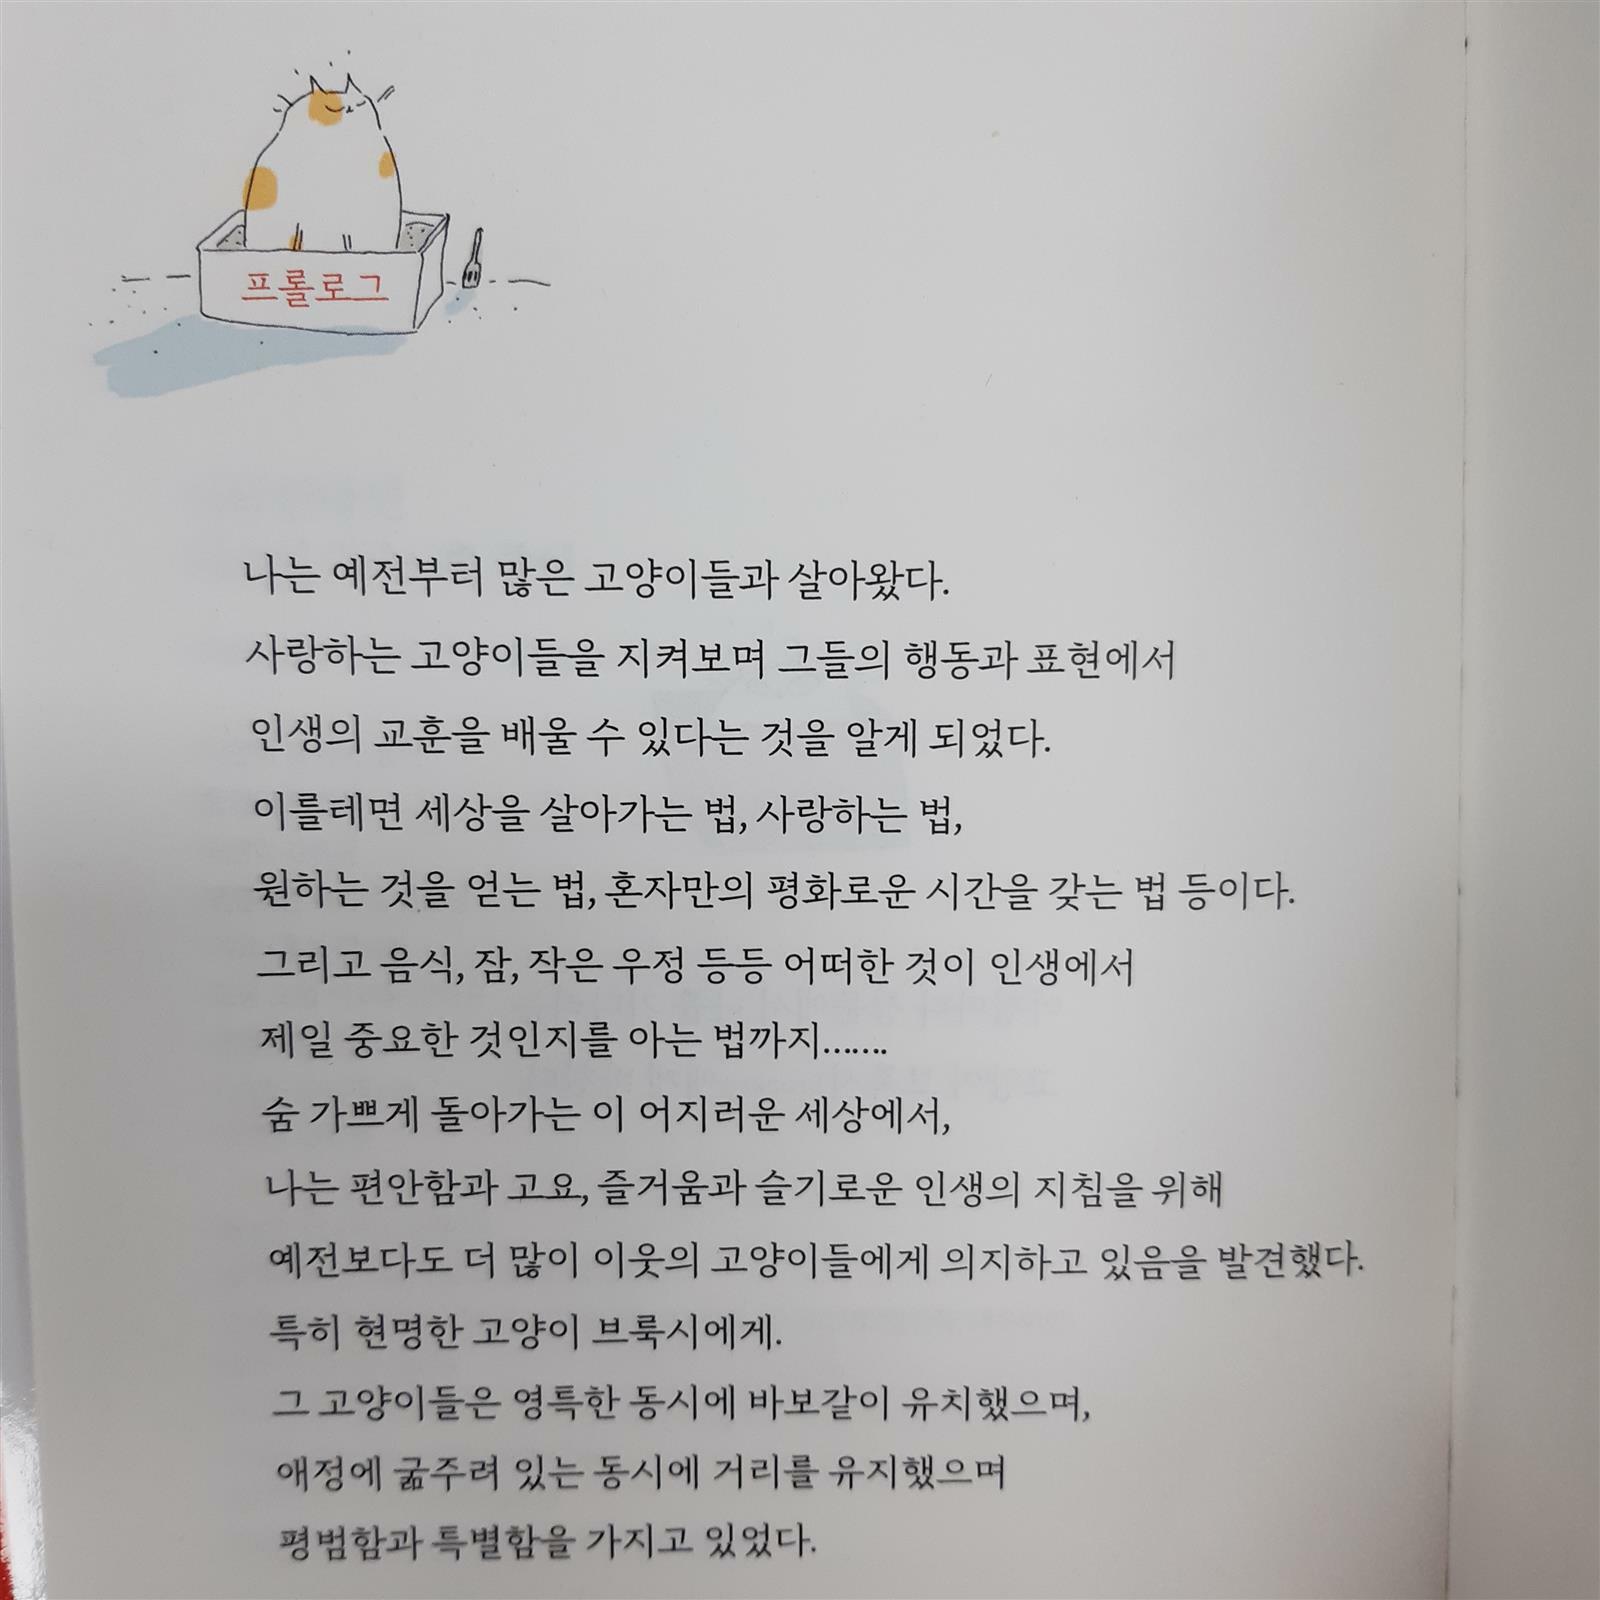 프롤로그
나는 예전부터 많은 고양이들과 살아왔다.
사랑하는 고양이들을 지켜보며 그들의 행동과 표현에서
인생의 교훈을 배울 수 있다는 것을 알게 되었다.
이를테면 세상을 살아가는 법, 사랑하는 법,
원하는 것을 얻는 법, 혼자만의 평화로운 시간을 갖는 법 등이다.
그리고 음식, 잠, 작은 우정 등등 어떠한 것이 인생에서
제일 중요한 것인지를 아는 법까지…….
숨 가쁘게 돌아가는 이 어지러운 세상에서,
나는 편안함과 고요, 즐거움과 슬기로운 인생의 지침을 위해
예전보다도 더 많이 이웃의 고양이들에게 의지하고 있음을 발견했다.
특히 현명한 고양이 브룩시에게.
그 고양이들은 영특한 동시에 바보같이 유치했으며,
애정에 굶주려 있는 동시에 거리를 유지했으며
평범함과 특별함을 가지고 있었다.